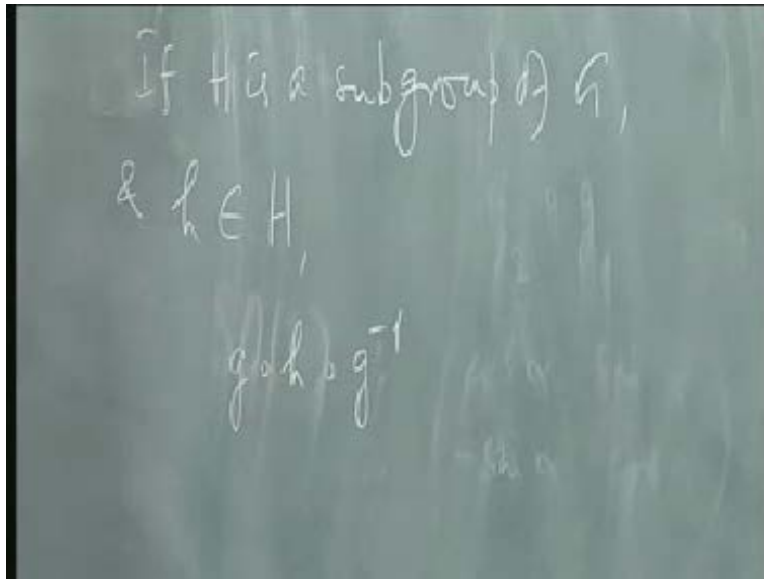 If H is a subgroup of G,
& h ∈ H,
g ∘ h ∘ g⁻¹